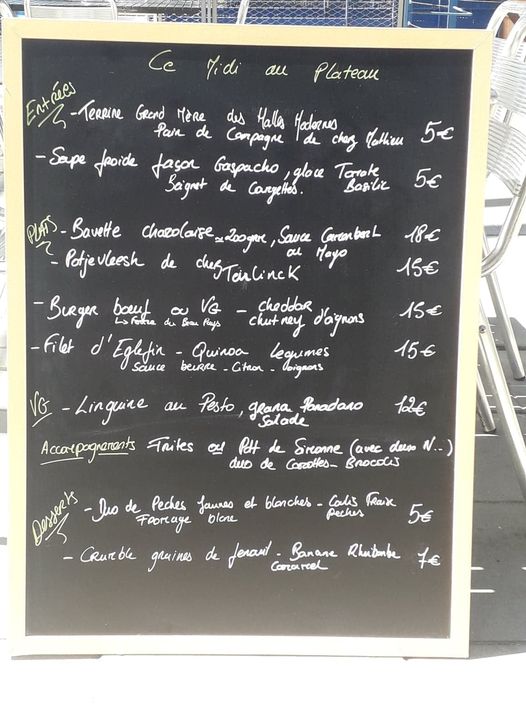 Ce Midi au Plateau
Entrées
- Terrine Grand Mère des Halles Modernes
Pain de Campagne de chez Mathieu 5€
- Soupe froide façon Gaspacho, glace Tomate
Basilic
Beignet de Courgettes. 5€
Plats
- Bavette charolaise ≃200gr, Sauce Camembert 18€
ou Mayo
- Potjevleesh de chez Teirlinck 15€
- Burger bœuf ou VG - cheddar
La Ferme du Beau Pays chutney d'oignons 15€
- Filet d'Eglefin - Quinoa legumes 15€
Sauce beurre - Citron - oignons
VG - Linguine au Pesto, grana Panadano 12€
Salade
Accompagnements Frites ou PdT de Simonne (avec deux N...)
duo de Carottes - Brocolis
Desserts
- Duo de Peches Jaunes et blanches - Coulis Fraise
Peches
Fromage blanc 5€
- Crumble graines de fenouil - Banane Rhubarbe 7€
Caramel